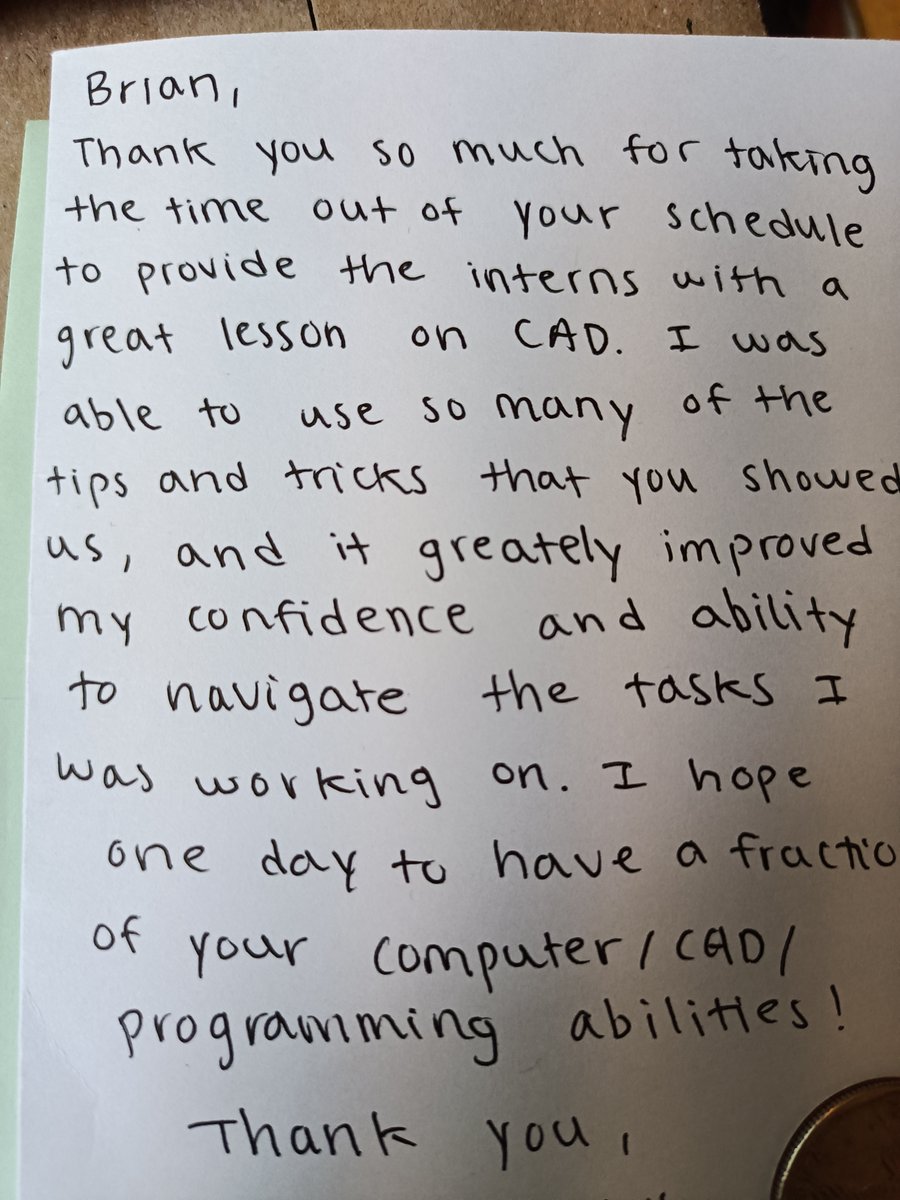 Brian,
Thank you so much for taking
the time out of your schedule
to provide the interns with a
great lesson on CAD. I was
able to use so many of the
tips and tricks that you showed
us, and it greately improved
my confidence and ability
to navigate the tasks I
was working on. I hope
one day to have a fractio
of your computer/CAD/
programming abilities!
Thank you,